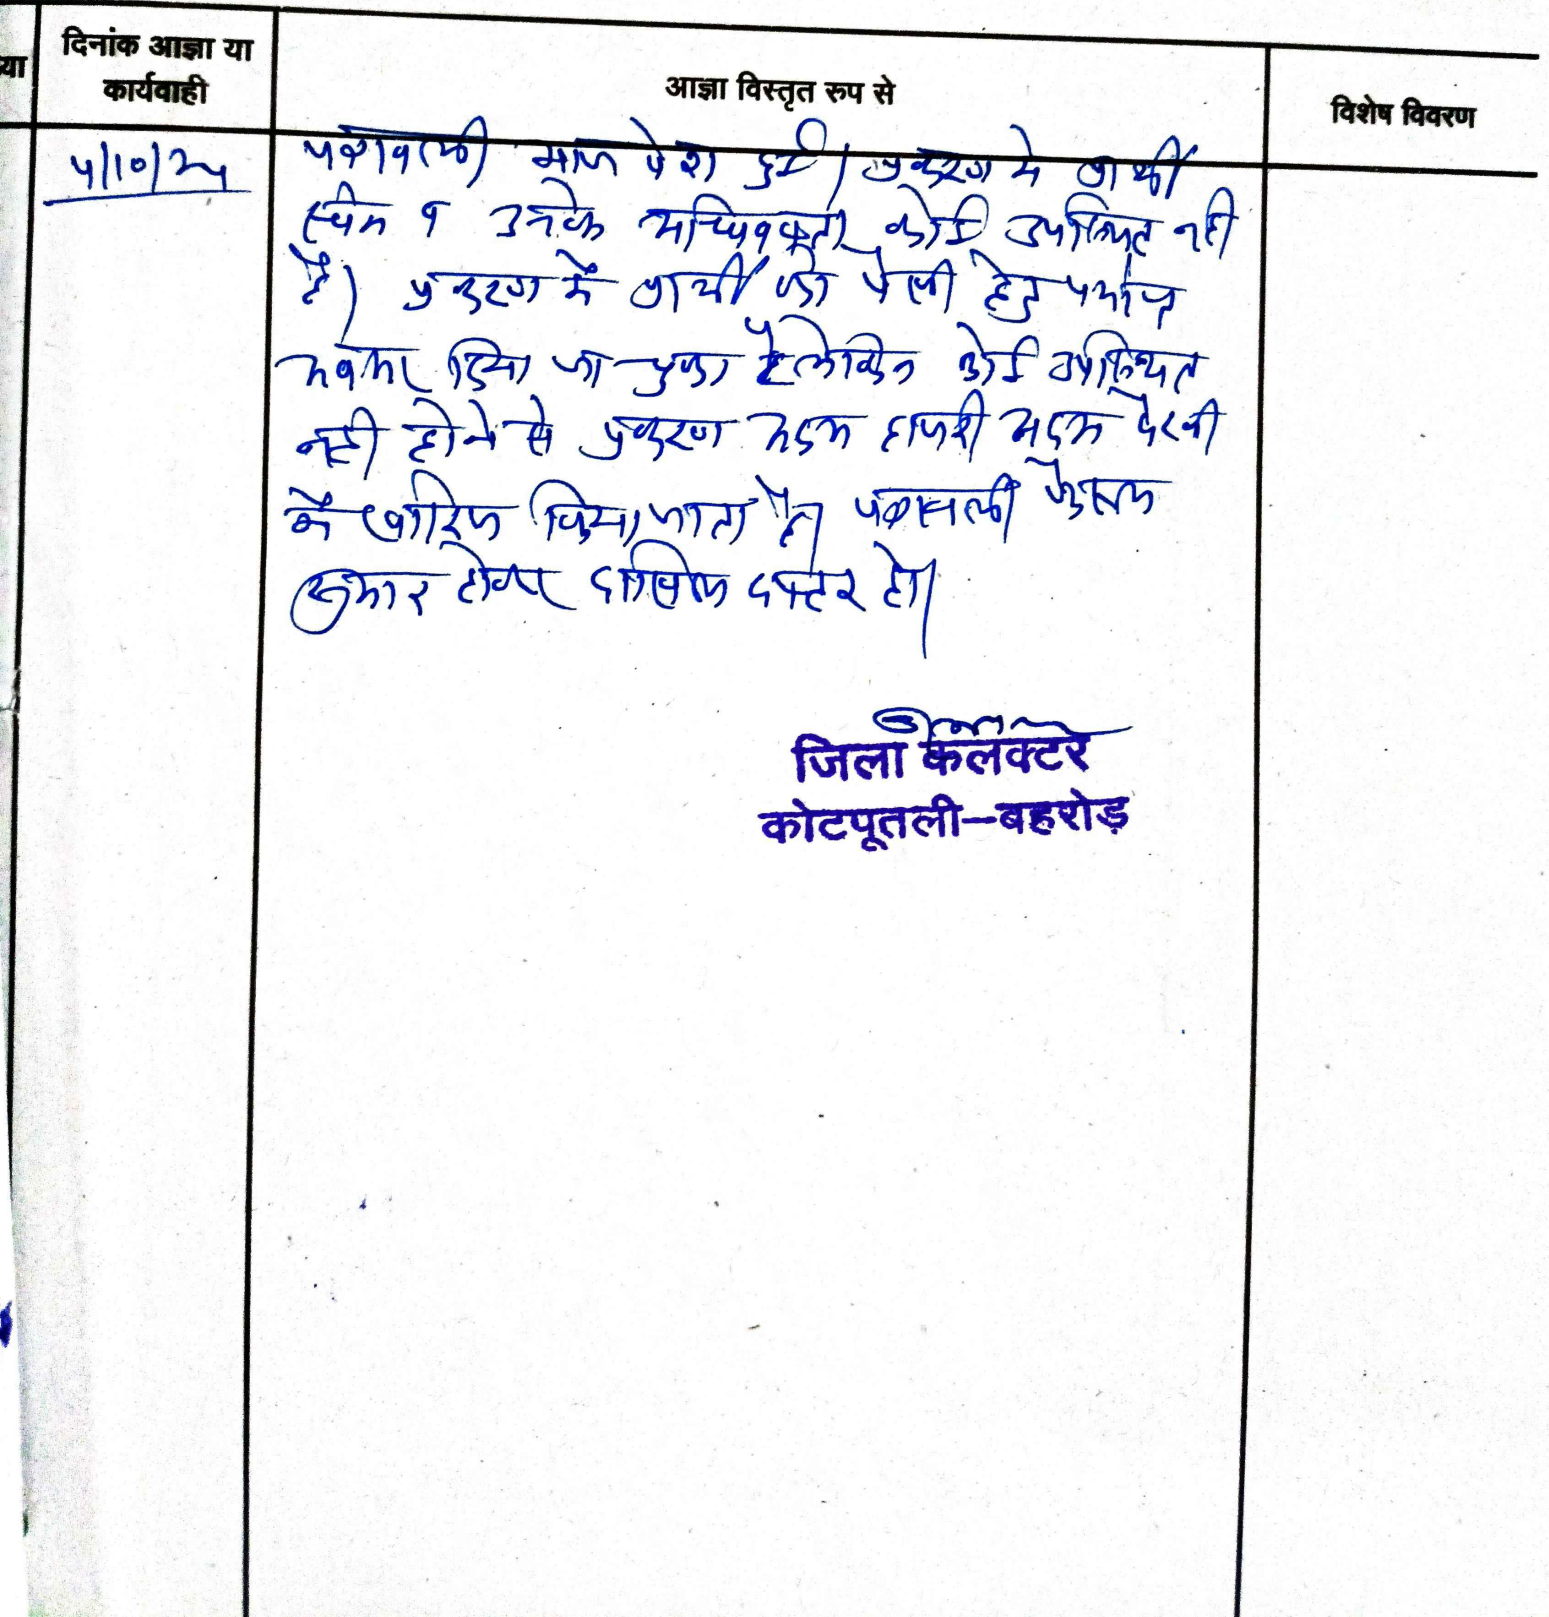 या
दिनांक आज्ञा या
कार्यवाही
आज्ञा विस्तृत रुप से
विशेष विवरण
पत्रावली आज पेश हुई। प्रकरण में प्रार्थी
स्वयं व उनके अधिवक्ता कोई उपस्थित नहीं
है। प्रकरण में प्रार्थी को पैरवी हेतु पर्याप्त
अवसर दिया जा चुका है लेकिन कोई उपस्थित
नहीं होने से प्रकरण अदम हाजरी अदम पैरवी
में खारिज किया जाता है। पत्रावली फैसल
शुमार होकर दाखिल दफ्तर हो।
जिला कलक्टर
कोटपूतली–बहरोड़